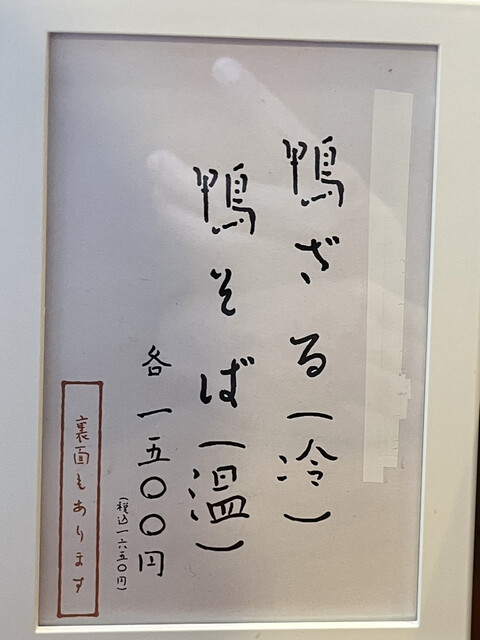 鴨ざる(冷)
鴨そば(温)
各一五〇〇円
(税込一六五〇円)
裏面もあります